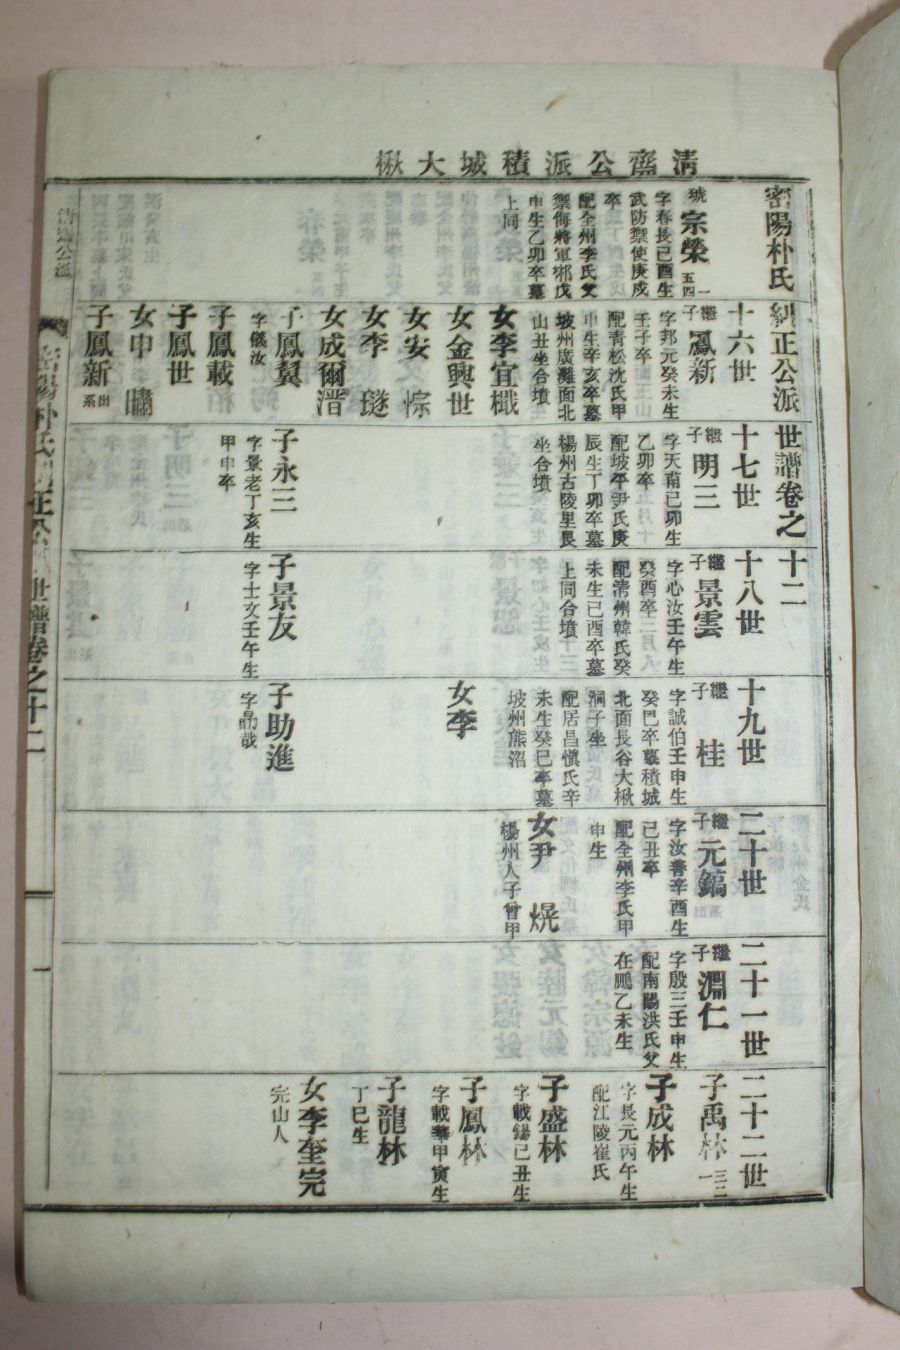 清齋公派積城大楸
密陽朴氏糾正公派世譜卷之十二
琥
宗榮
一五四
字春長己酉生
武防禦使庚戌
卒
配全州李氏父
禦侮將軍祁戊
申生乙卯卒墓
上同
十六世
繼子鳳新
字邦元癸未生
壬子卒
配青松沈氏甲
申生辛亥卒墓
坡州廣灘面北
山丑坐合墳
女李宜樴
女金興世
女安悰
女李
女成爾溍
子鳳翼
字儀汝
子鳳載
子鳳世
女申
子鳳新
出系
十七世
繼子明三
字天甫己卯生
乙卯卒
配坡平尹氏庚
辰生丁卯卒墓
楊州古陵里艮
坐合墳
子永三
字景老丁亥生
甲申卒
十八世
繼子景雲
字心汝壬午生
癸酉卒二月八
配清州韓氏癸
未生己酉卒墓
上同合墳
子景友
字士文壬午生
十九世
繼子桂
字誠伯壬申生
癸巳卒墓積城
北面長谷大楸
洞子坐
配居昌愼氏辛
未生癸巳卒墓
坡州熊沼
女李
子助進
字勗哉
二十世
繼子元鎬
字汝善辛酉生
己丑卒
配全州李氏甲
申生
女尹熀
楊州人子曾甲
二十一世
繼子淵仁
字殷三壬申生
配南陽洪氏父
在鵬乙未生
二十二世
子禹林
一三二
子成林
字長元丙午生
配江陵崔氏
子盛林
字載錫己丑生
子鳳林
字載華甲寅生
子龍林
丁巳生
女李奎完
完山人
清齋公派
密陽朴氏糾正公派世譜卷之十二
一